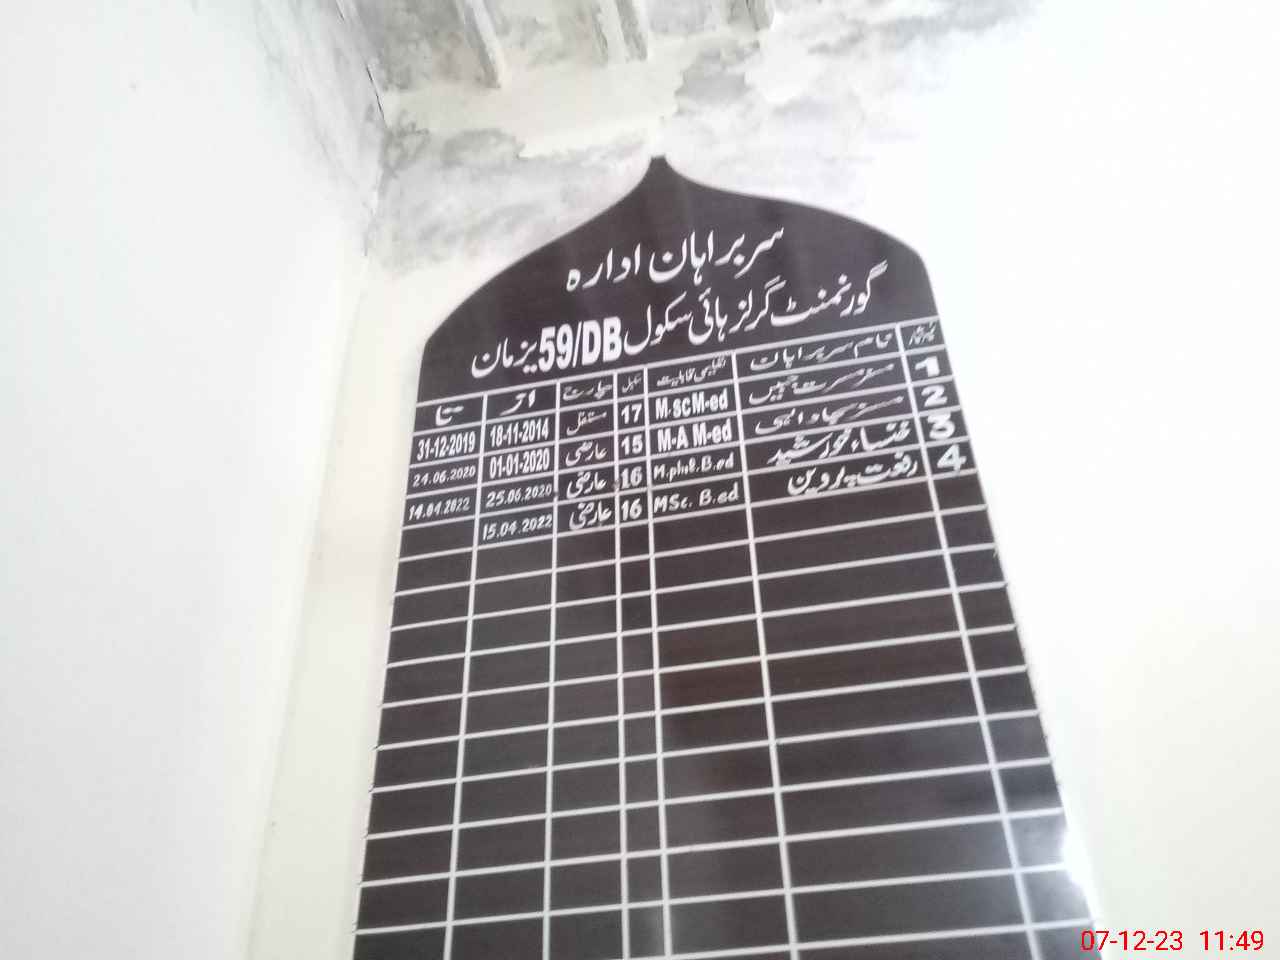 سربراہان ادارہ
گورنمنٹ گرلز ہائی سکول 59/DB یزمان
نمبر شمار نام سربراہان تعلیمی قابلیت سکیل چارج از تا
1 مسز مسرت جبیں M.sc M-ed 17 مستقل 18-11-2014 31-12-2019
2 مسز سجاد الہی M-A M-ed 15 عارضی 01-01-2020 24.06.2020
3 خنساء خورشید M.phil. B.ed 16 عارضی 25.06.2020 14.04.2022
4 رفعت پروین MSc. B.ed 16 عارضی 15.04.2022
07-12-23 11:49